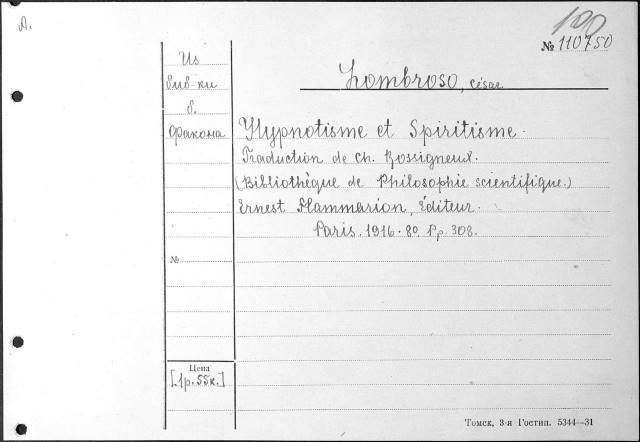 Д.
100
№ 110750
Из
биб-ки
б.
Факона
Lombroso, César
Hypnotisme et Spiritisme.
Traduction de Ch. Rossigneux.
(Bibliothèque de Philosophie scientifique.)
Ernest Flammarion, Éditeur.
Paris. 1916. 8º. Pp. 308.
№
Цена
[1р. 55к.]
Томск, 3-я Гостип. 5344—31